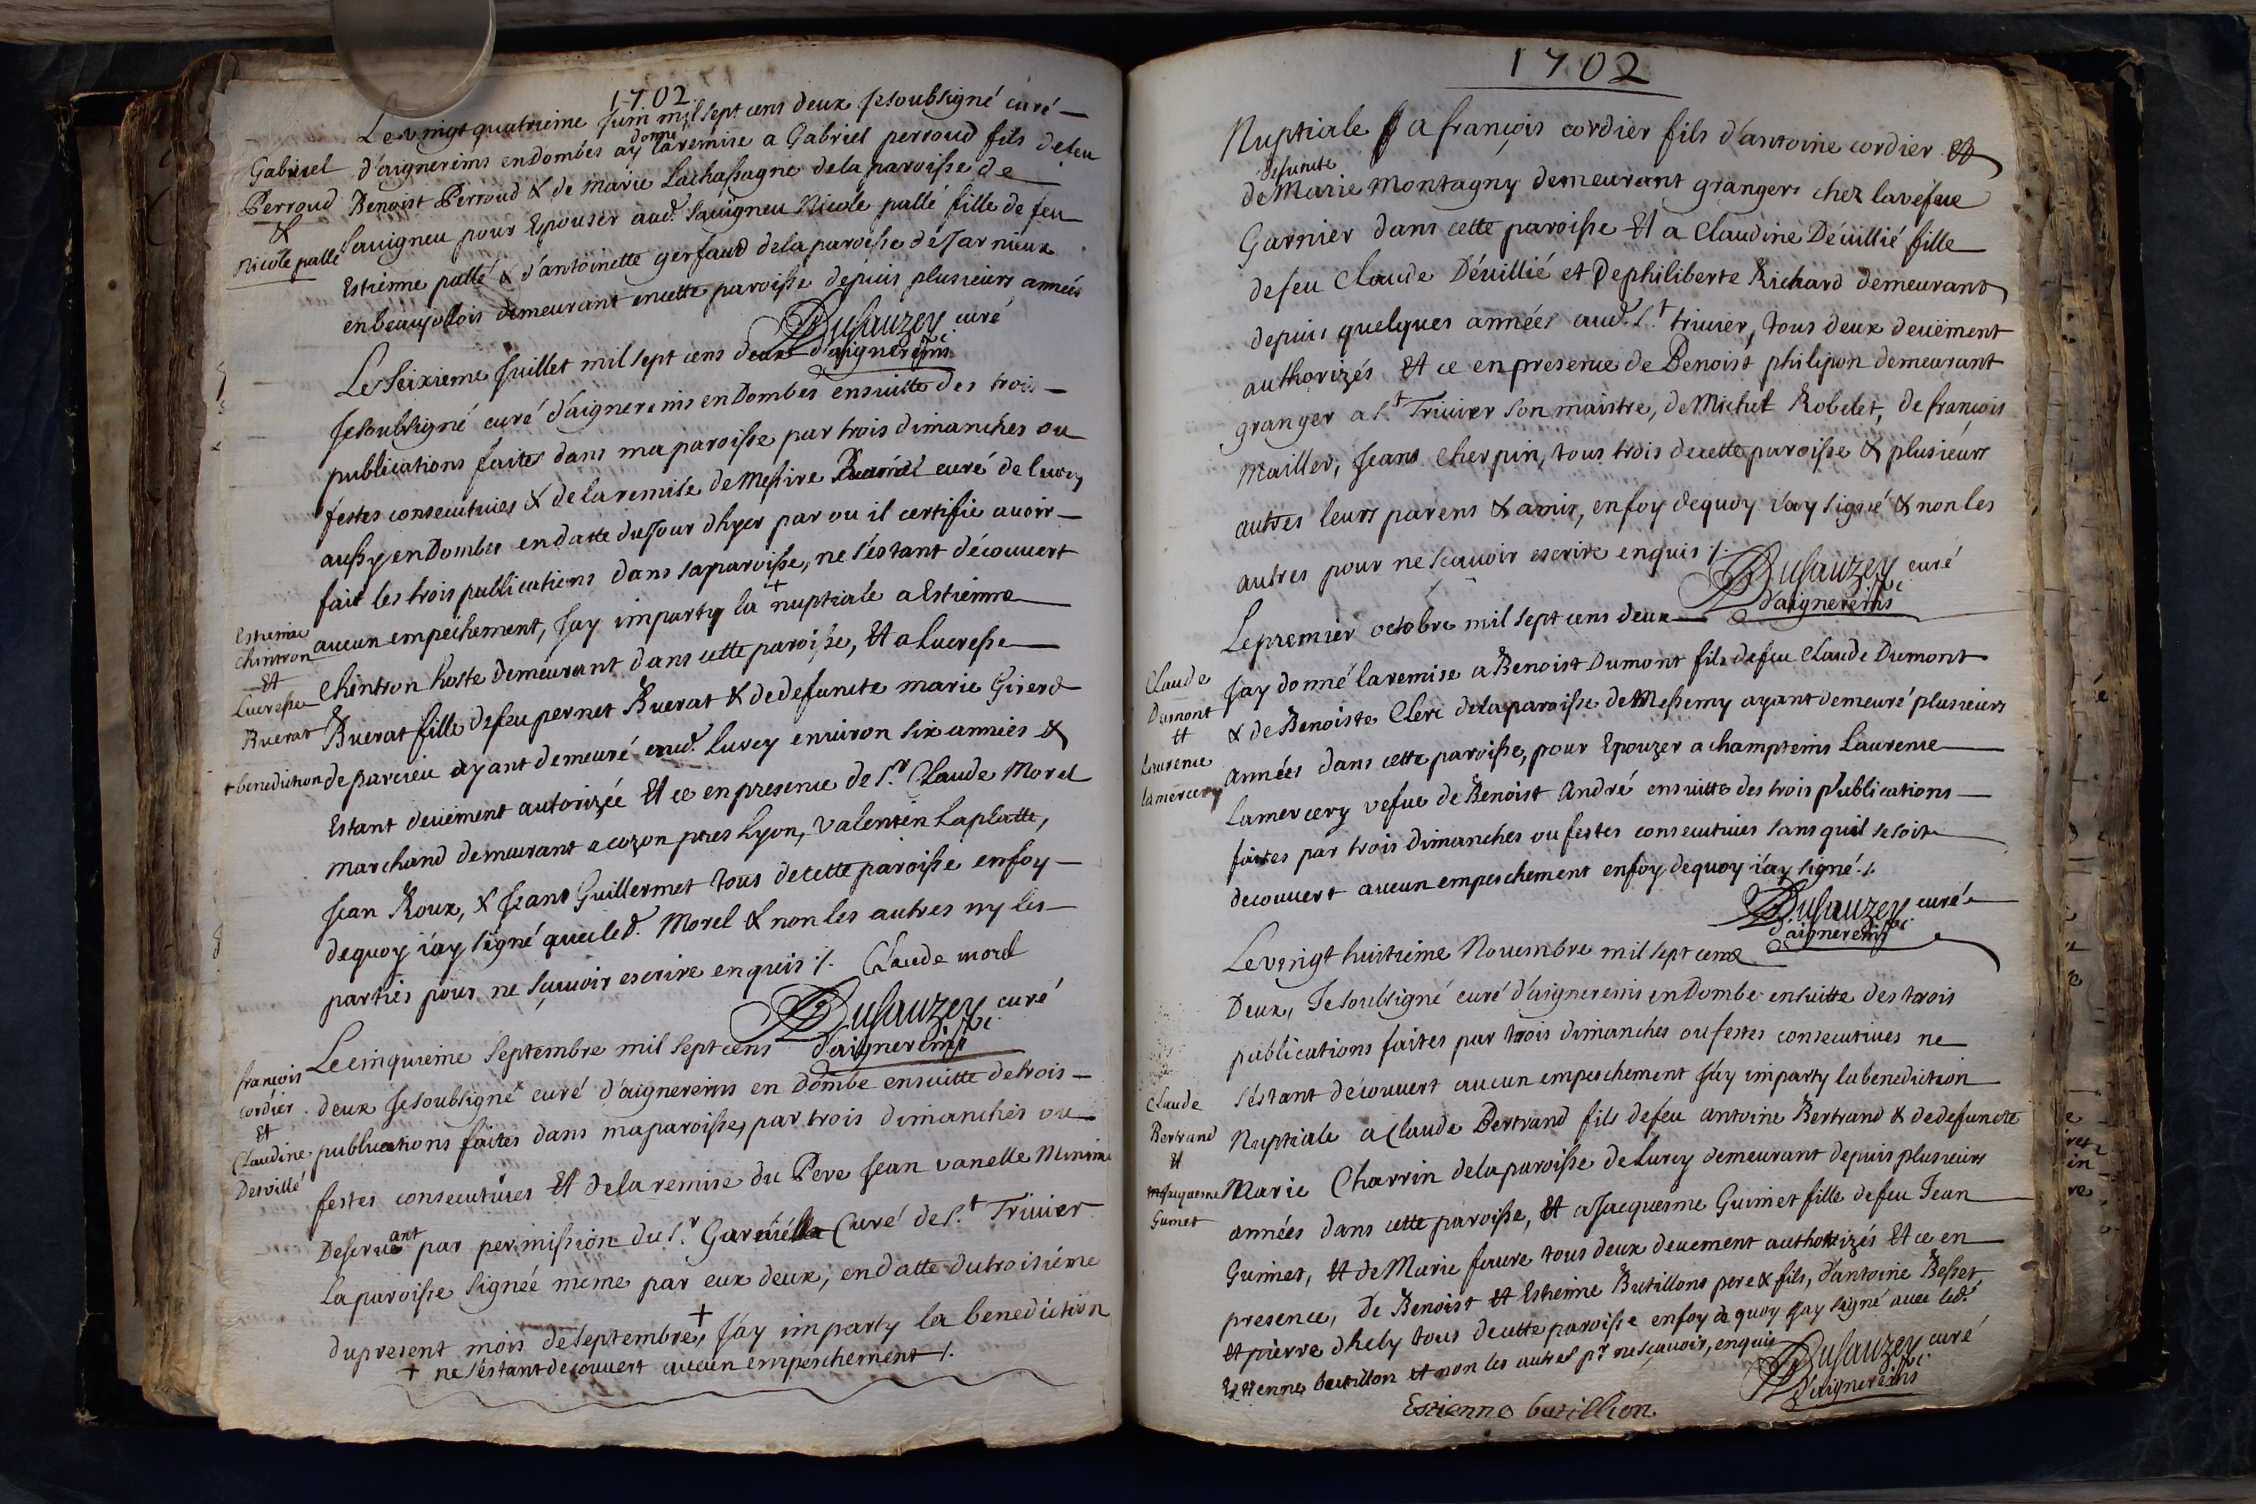 1702
Le vingt quatrieme Juin mil sept cens deux Je soubsigné curé
d'aignereins en Dombes ay donné la remise a Gabriel perroud fils de feu
Benoist Perroud & de marie Lachassagne de la paroisse de
savigneu pour Epouser aud. savigneu Nicole pallé fille de feu
Estienne pallé & d'antoinette gerfaud de la paroisse de Jarnieux
en beaujollois demeurant en cette paroisse depuis plusieurs années
Gabriel
Perroud
&
Nicole pallé
Dusauzey curé
d'aignereins
Le Seixieme Juillet mil sept cens deux
Je soubsigné curé d'aignereins en Dombes ensuitte des trois
publications faites dans ma paroisse par trois dimanches ou
festes consecutives & de la remise de Messire curé de lurcy
aussy en Dombes en datte du Jour dhyer par ou il certifie avoir
fait les trois publications dans sa paroisse, ne s'estant découvert
aucun empéchement, J'ay imparty la + nuptiale a Estienne
Chintron hoste demeurant dans cette paroisse, Et a Lucresse
Buerat fille de feu pernet Buerat & de defuncte marie Girerd
de parcieu ayant demeuré aud. lurcy environ six années &
Estant deuëment autorizée Et ce en presence de Sr. Claude Morel
marchand demeurant a cozon pres Lyon, Valentin Laplatte,
Jean Roux, & Jean Guillermet tous de cette paroisse en foy
dequoy i'ay signé que led. Morel & non les autres ny les
parties pour ne sçavoir escrire enquis /. Claude morel
Estienne
Chintron
Et
Lucresse
Buerat
+ benediction
Dusauzey curé
d'aignereins
Le cinquieme Septembre mil sept cens
deux Je soubsigné curé d'aignereins en Dombe ensuitte de trois
publications faites dans ma paroisse, par trois dimanches ou
festes consecutives Et de la remise du Pere Jean vanelle Minime
Deservant par permission du Sr. Curé de St. Trivier
La paroisse signée meme par eux deux, en datte du troisiéme
du present mois de Septembre, + J'ay imparty la benediction
+ ne s'estant découvert aucun empeschement /.
françois
cordier
Et
Claudine
Devillé
1702
Nuptiale a françois cordier fils d'antoine cordier &
de defuncte Marie Montagny demeurant granger chez la vefue
Garnier dans cette paroisse Et a Claudine Dévillié fille
de feu Claude Dévillié et De philiberte Richard demeurant
depuis quelques années aud. St. trivier, tous deux deuëment
authorizés Et ce en presence de Benoist philipon demeurant
granger a St Trivier son maistre, de Michel Robelet, de françois
Mailler, Jean Cherpin, tous trois de cette paroisse & plusieurs
autres leurs parens & amis, en foy dequoy i'ay signé & non les
autres pour ne scavoir escrire enquis /.
Dusauzey curé
d'aignereins
Le premier octobre mil sept cens deux
J'ay donné la remise a Benoist Dumont fils de feu Claude Dumont
& de Benoiste Clerc de la paroisse de Messemy ayant demeuré plusieurs
années dans cette paroisse, pour Epouzer a champteins Laurence
Lamercery vefue de Benoist André ensuitte des trois publications
faites par trois Dimanches ou festes consecutives sans quil se soit
decouvert aucun empeschement en foy dequoy i'ay signé /.
Claude
Dumont
Et
Laurence
Lamercery
Dusauzey curé
d'aignereins
Le vingt huitieme Novembre mil sept cens
Deux, Je soubsigné curé d'aignereins en Dombe ensuitte des trois
publications faites par trois dimanches ou festes consecutives ne
s'éstant découvert aucun empeschement J'ay imparty la benediction
Nuptiale a Claude Bertrand fils de feu antoine Bertrand & de defuncte
Marie Charrin de la paroisse de Lurcy demeurant depuis plusieurs
années dans cette paroisse, Et a Jacquesme Guimet fille de feu Jean
Guimet, Et de Marie faure tous deux deuement authorizés Et ce en
presence, De Benoist Et Estienne Butillons pere & fils, d'antoine Besset
Et pierre dhely tous de cette paroisse en foy de quoy J'ay signé avec led.
Estienne butillon et non les autres pr ne sçavoir, enquis
Claude
Bertrand
Et
Jacqueme
Gumet
Dusauzey curé
d'aignereins
Estienne butillion